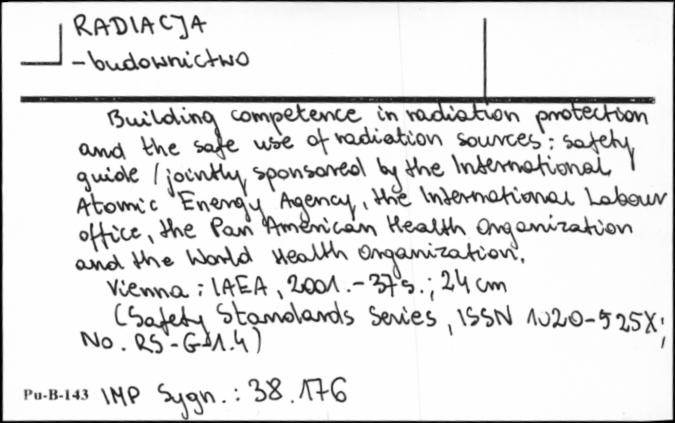 RADIACJA
- budownictwo
Building competence in radiation protection
and the safe use of radiation sources : safety
guide / jointly sponsored by the International
Atomic Energy Agency, the International Labour
office, the Pan American Health Organization
and the World Health Organization.
Vienna : IAEA, 2001. - 37 s. ; 24 cm
(Safety Standards Series, ISSN 1020-525X;
No. RS-G-1.4)
Pu-B-143 IMP Sygn. : 38.176